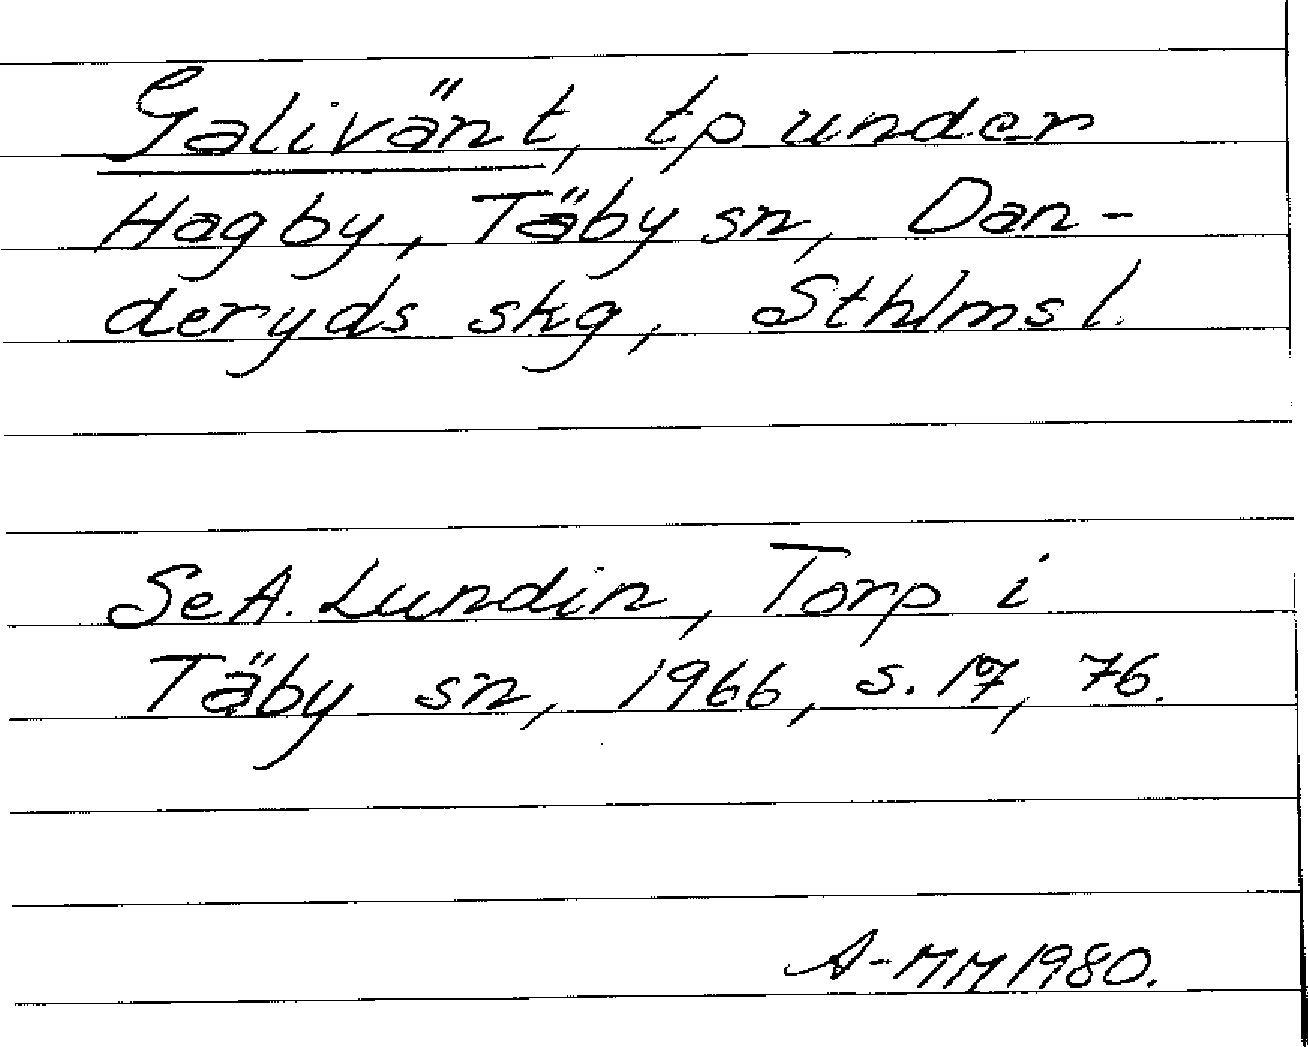 Galivänt, tp under
Hagby, Täby sn, Dan-
deryds skg, Sthlms l.
Se A. Lundin, Torp i
Täby sn, 1966, s. 17, 76.
A-MM 1980.